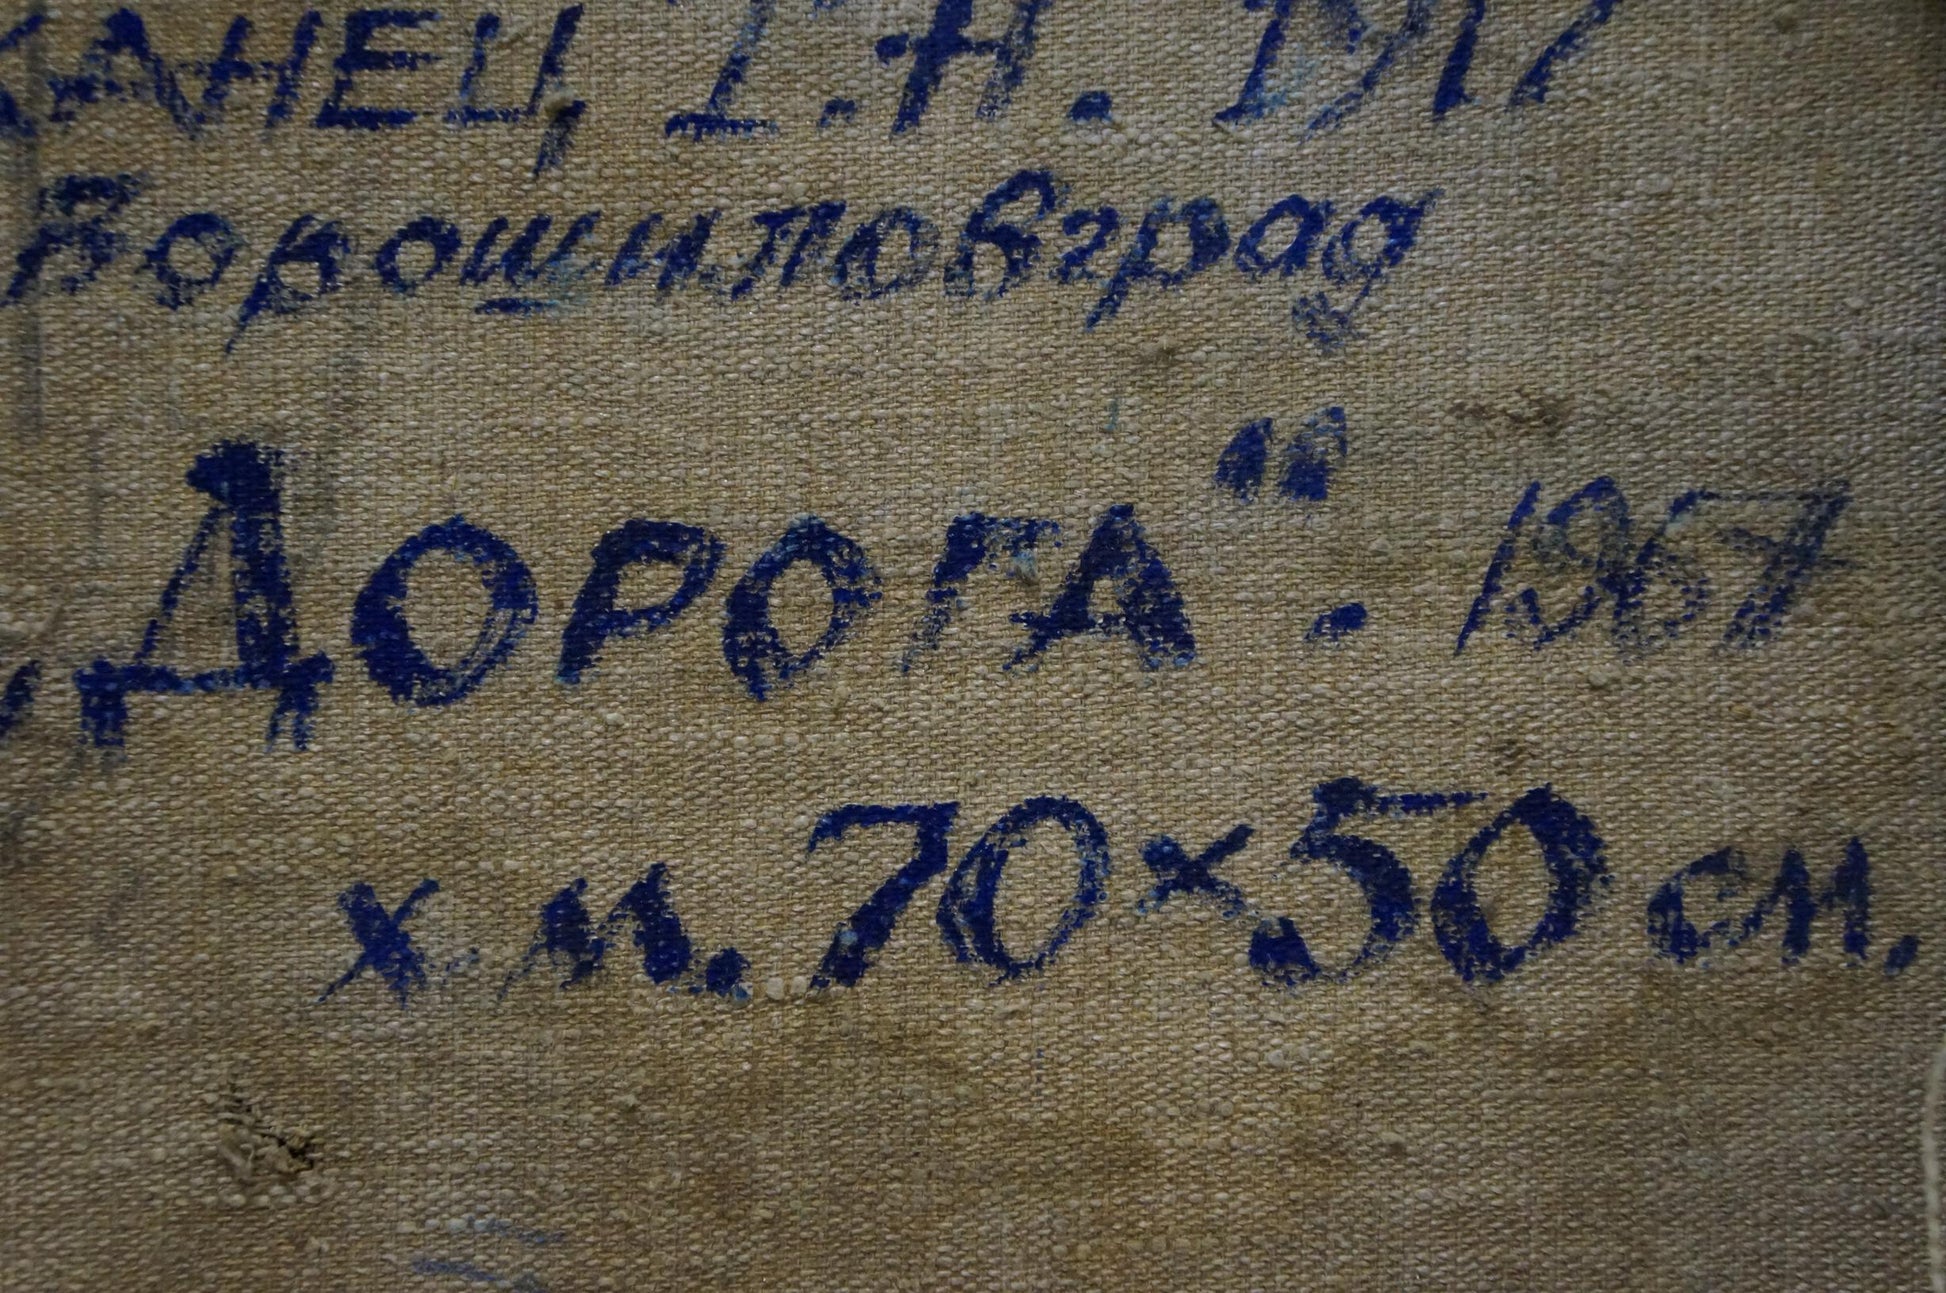 КАНЕЦ Г.Н. 1917
Ворошиловград
„Дорога“. 1967
х.м. 70×50 см.